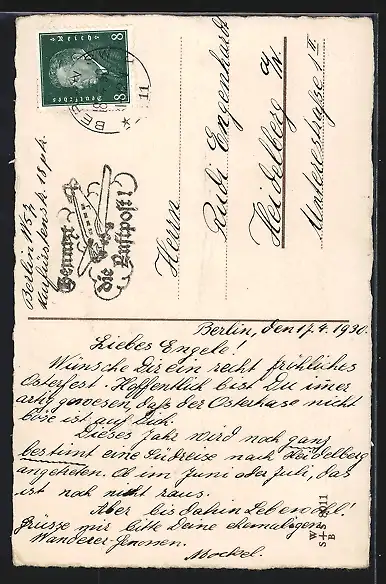 8 Deutsches Reich 8
BERLIN
11
Benutzt
die Luftpost!
Berlin W57
Kurfürstenstr. 18 ptr.
Herrn
Pauli Engenhardt
Heidelberg a/N.
Untere straße 1 II
Berlin, den 17.4.1930.
Liebes Engele!
Wünsche Dir ein recht fröhliches
Osterfest. Hoffentlich bist Du imer
artig gewesen, daß der Osterhase nicht
böse ist auf Dich.
Dieses Jahr wird noch ganz
bestimt eine Südreise nach Heidelberg
angetreten. Ob im Juni oder Juli, das
ist noch nicht raus.
Aber bis dahin Lebewohl!
Grüsze mir bitte Deine ehemaligen
Wanderer-Genossen.
W
S+S
B